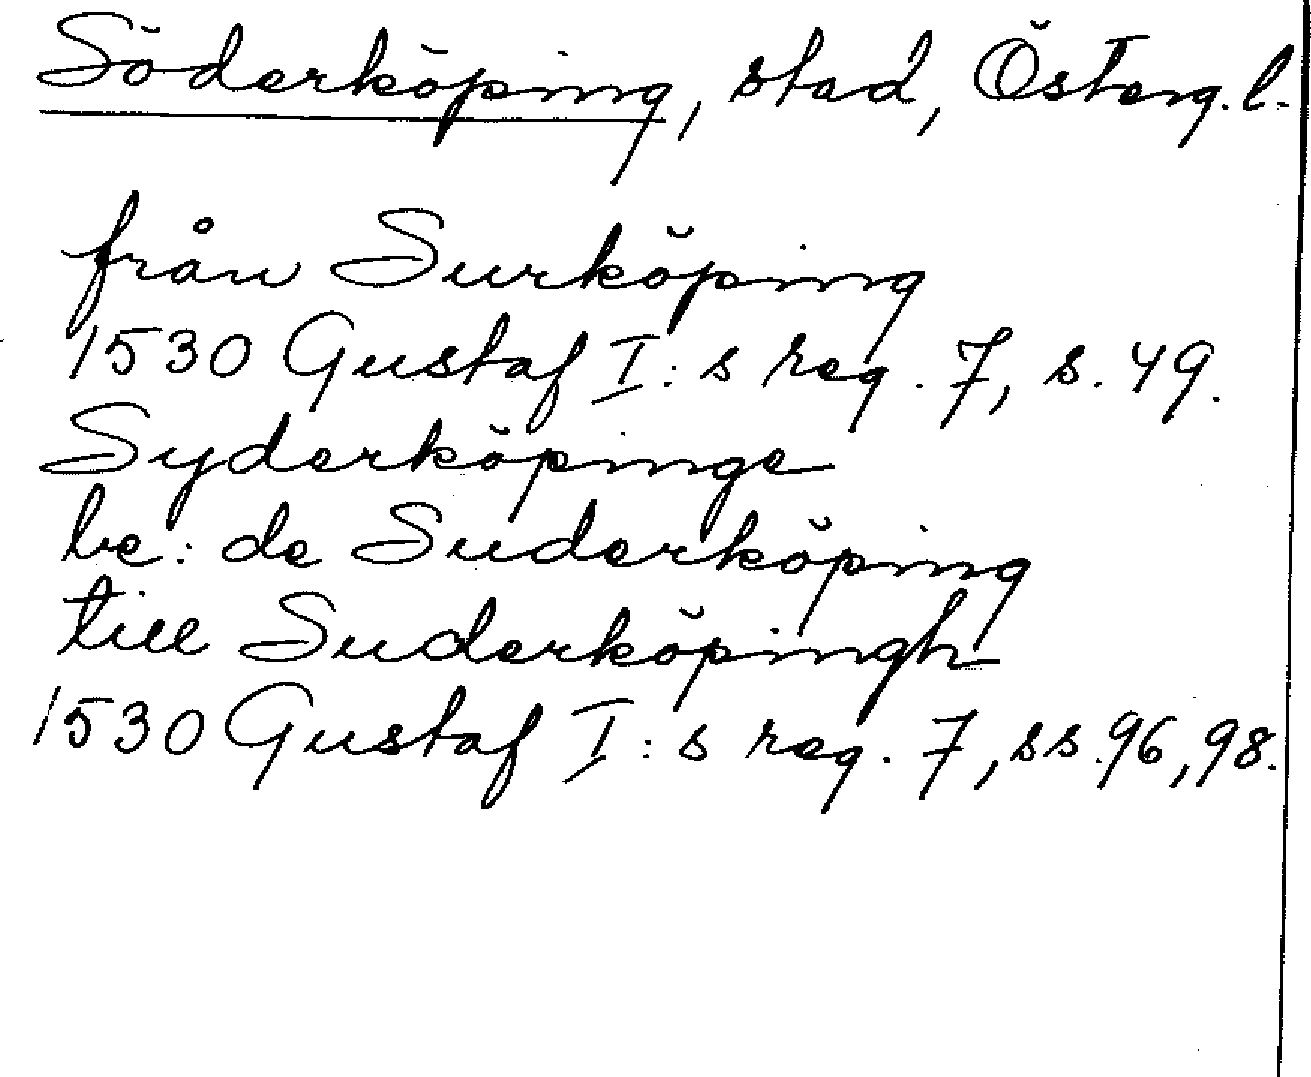 Söderköping, stad, Österg. l.
från Surköping
1530 Gustaf I:s reg. 7, s. 49.
Syderköpinge
be: de Suderköping
till Suderköpingh
1530 Gustaf I:s reg. 7, ss. 96, 98.